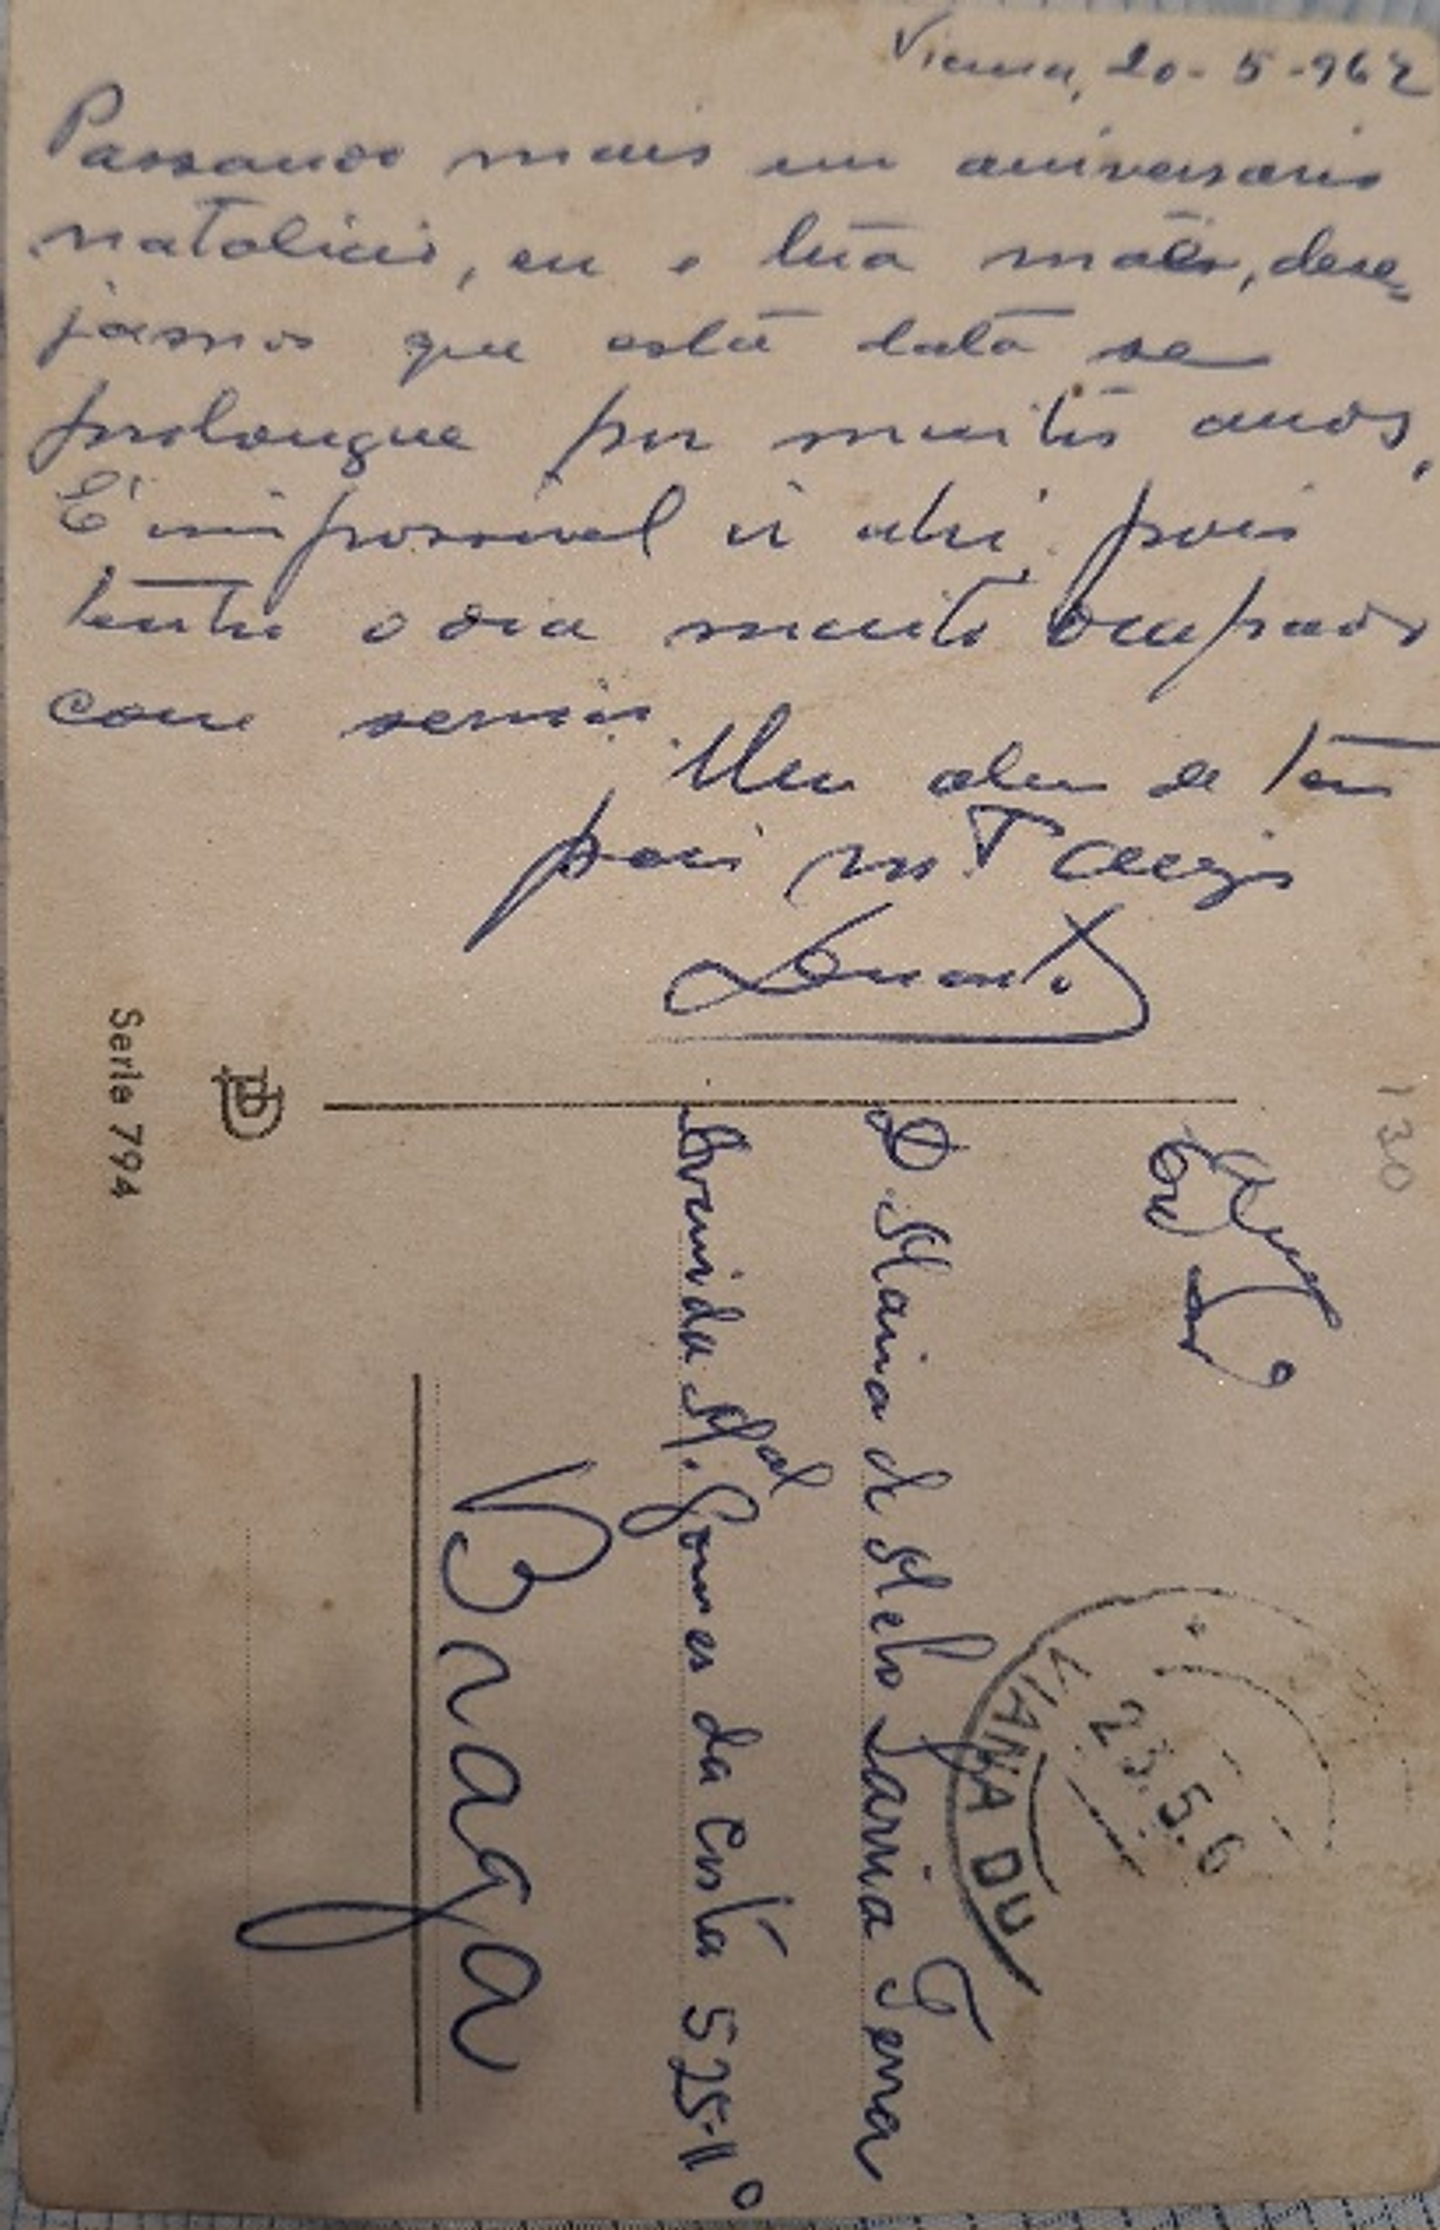 Viana, 20-5-962
Passando mais um aniversario
natalicio, eu e tua mãe, dese-
jamos que esta data se
prolongue por muitos anos.
É impossivel ir ahi pois
tenho o dia muito ocupado
com serviço.
Um de teu
pai m.to
Exma
D Maria de Melo Sarria Terra
Avenida M.al Gomes da Costa 525-1º
Braga
VIANA DO
23.5.6
130
Serie 794